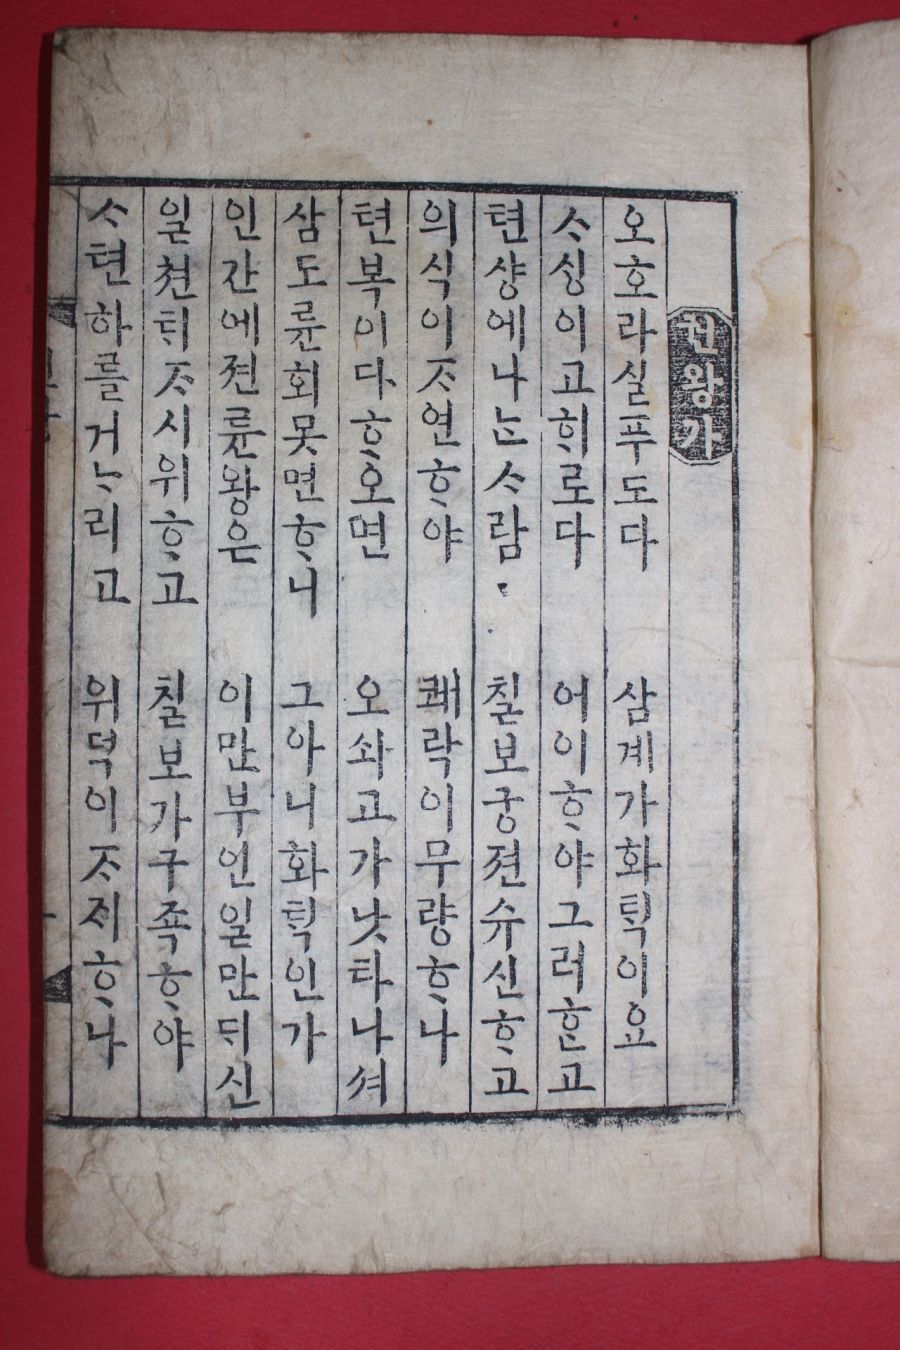 권왕가
오호라실푸도다 삼계가화ᄐᆡᆨ이요
ᄉᆞᄉᆡᆼ이고ᄒᆡ로다 어이ᄒᆞ야그러ᄒᆞᆫ고
텬샹에나ᄂᆞᆫᄉᆞ람 칠보궁젼슈신ᄒᆞ고
의식이ᄌᆞ연ᄒᆞ야 쾌락이무량ᄒᆞ나
텬복이다ᄒᆞ오면 오솨고가낫타나셔
삼도륜회못면ᄒᆞ니 그아니화ᄐᆡᆨ인가
인간에젼륜왕은 이만부인일만ᄃᆡ신
일쳔ᄐᆡᄌᆞ시위ᄒᆞ고 칠보가구족ᄒᆞ야
ᄉᆞ텬하를거ᄂᆞ리고 위덕이ᄌᆞ지ᄒᆞ나